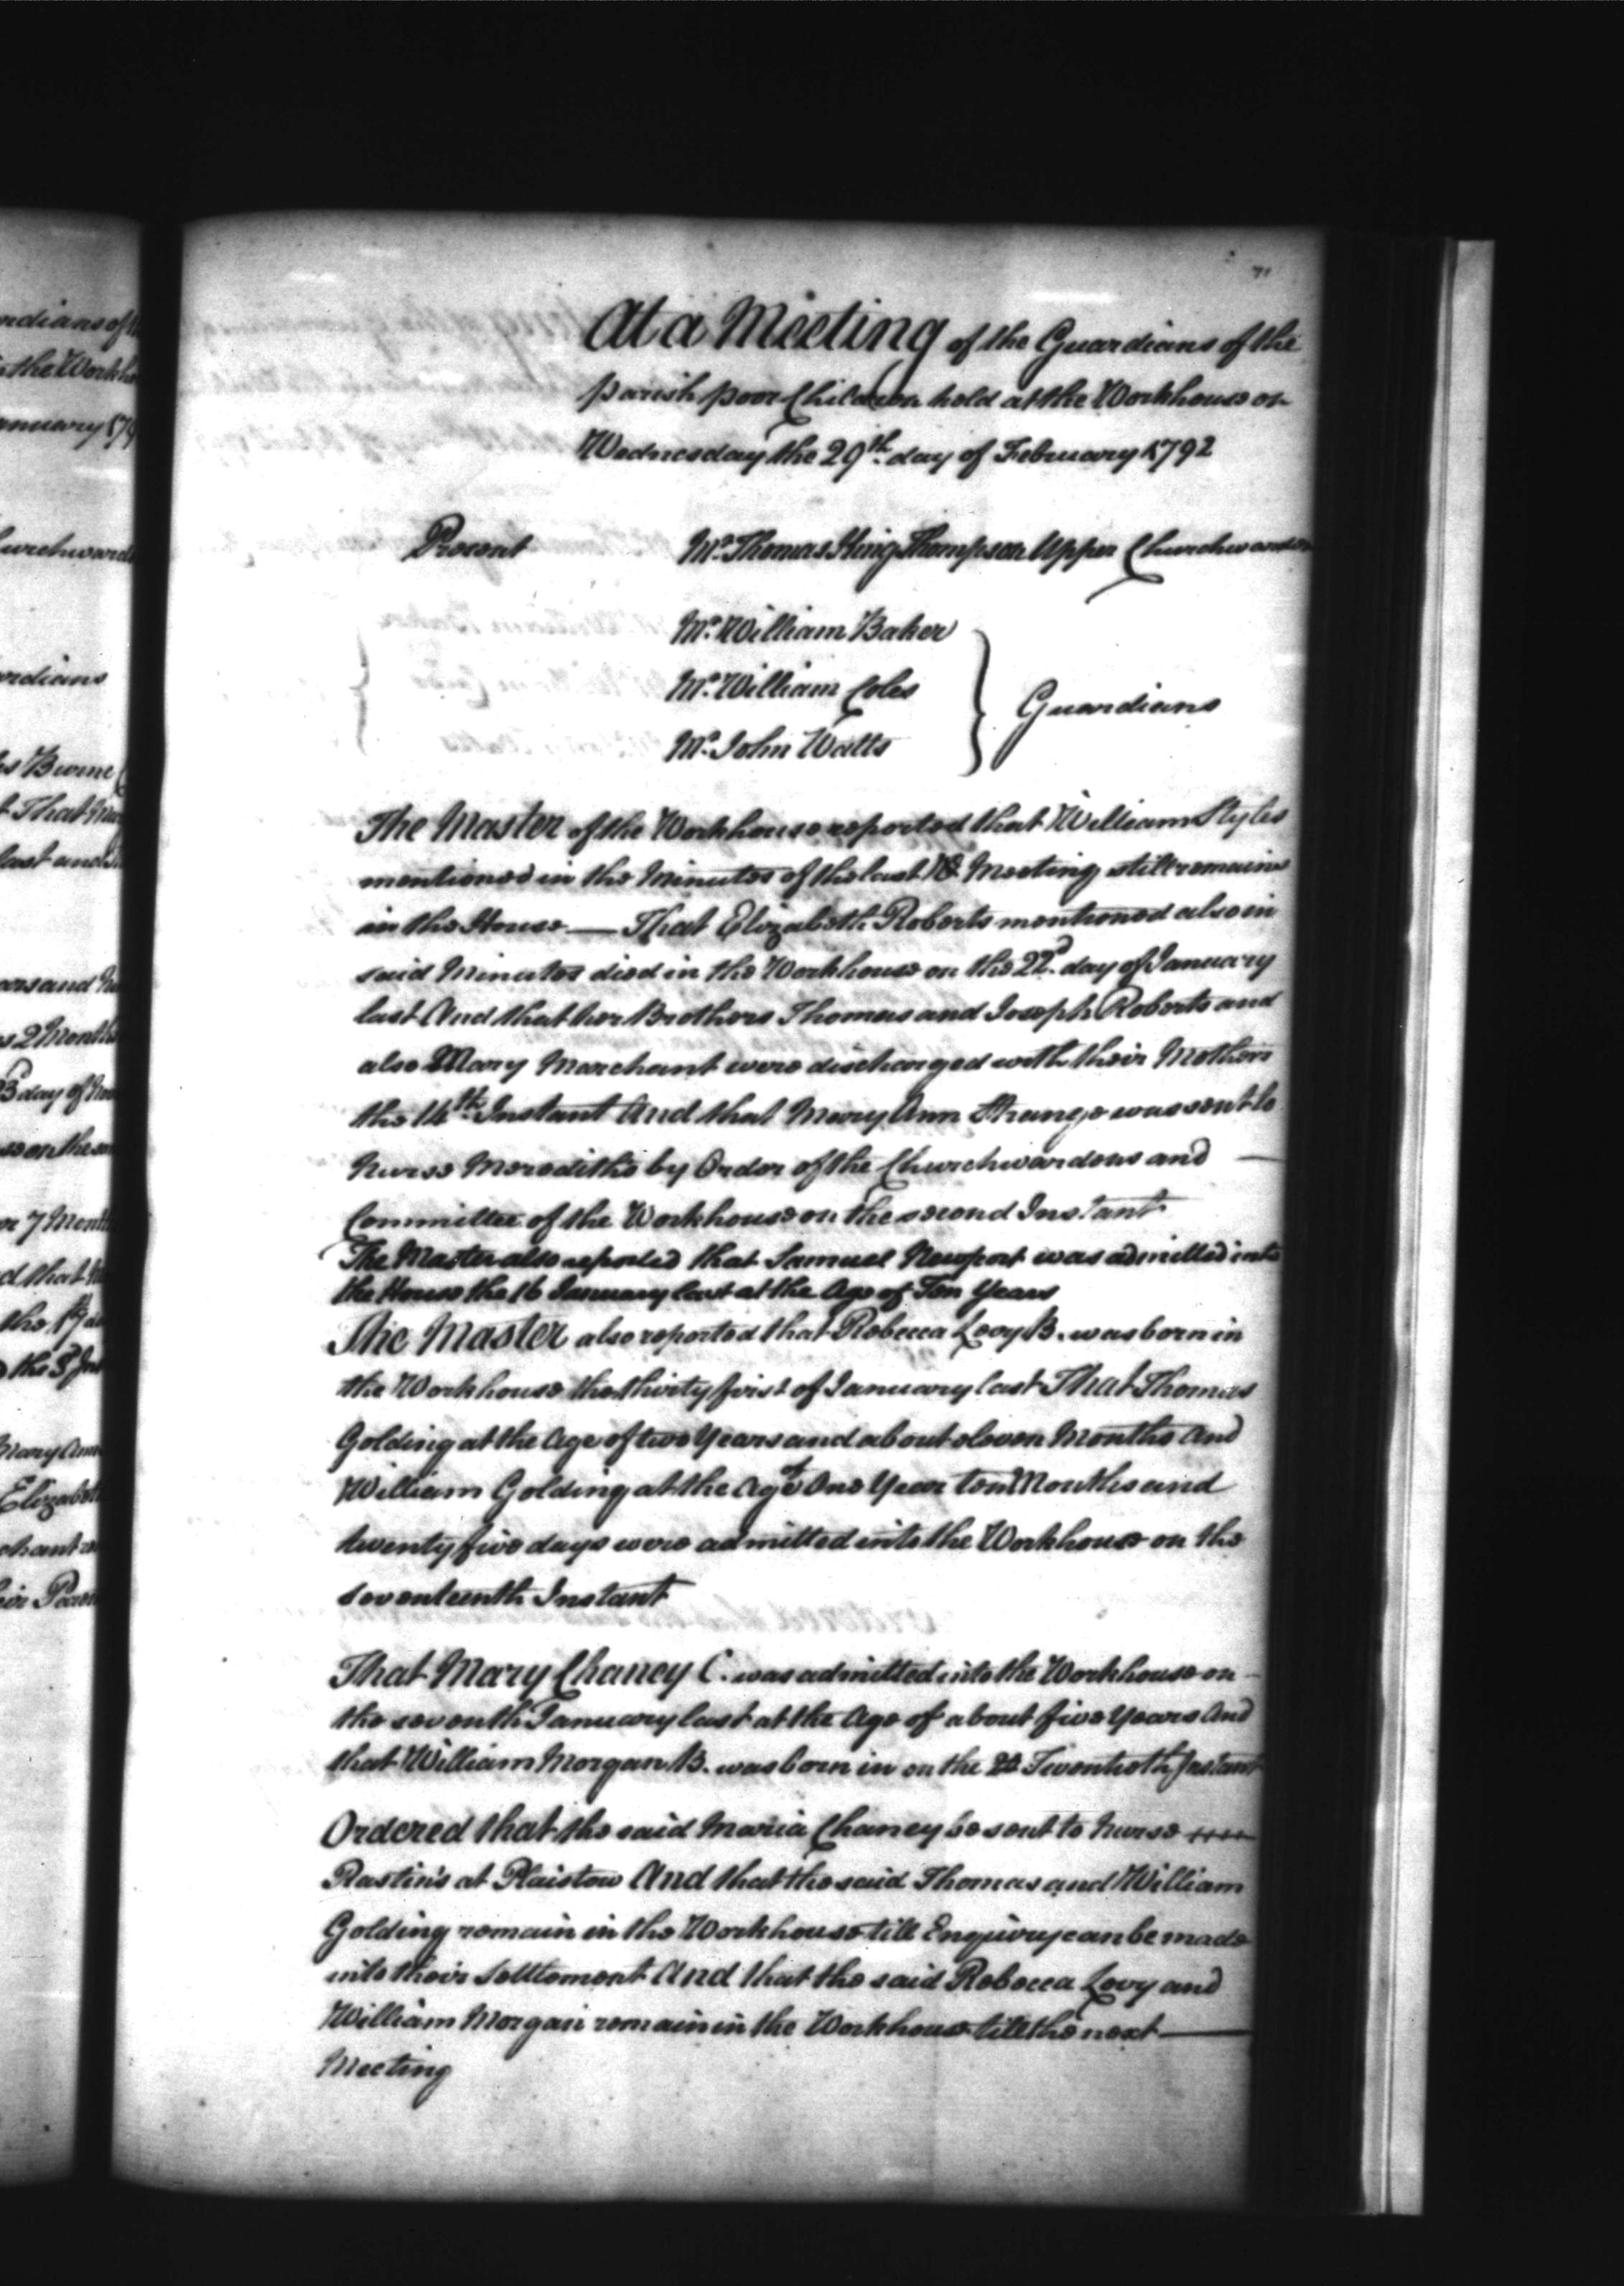 ardians of the
the Workho
anuary 179
hurchwarde
ardians
s Burne
t That
last and
ars and
s 2 Months
3d day of
se on the
or 7 Month
d that
the 17
the 3d Ins
Mary Ann
Elizabeth
chant
eir Paren
71
At a Meeting of the Guardians of the
parish poor Children held at the Workhouse on
Wednesday the 29th. day of February 1792
Present
Mr. Thomas King Thompson Upper Churchwarden
Mr. William Baker
Mr. William Coles
Guardians
Mr. John Watts
The Master of the Workhouse reported that William Styles
mentioned in the Minutes of the last Meeting still remains
in the House — That Elizabeth Roberts mentioned also in
said Minutes died in the Workhouse on the 22d. day of January
last And that her Brothers Thomas and Joseph Roberts and
also Mary Marchant were discharged with their Mothers
the 14th. Instant And that Mary Ann Strange was sent to
Nurse Merediths by Order of the Churchwardens and —
Committee of the Workhouse on the second Instant
The Master also reported that Samuel Newport was admitted into
the House the 16 January last at the Age of Ten Years
The Master also reported that Rebecca Levy B. was born in
the Workhouse the thirty first of January last That Thomas
Golding at the Age of two Years and about eleven Months And
William Golding at the Age of One Year ten Months and
twenty five days were admitted into the Workhouse on the
seventeenth Instant
That Mary Chaney C. was admitted into the Workhouse on
the seventh January last at the Age of about five Years And
that William Morgan B. was born in on the 20 Twentieth Instant
Ordered that the said Maria Chaney be sent to Nurse
Rastin's at Plaistow And that the said Thomas and William
Golding remain in the Workhouse till Enquiry can be made
into their Settlement And that the said Rebecca Levy and
William Morgan remain in the Workhouse till the next —
Meeting